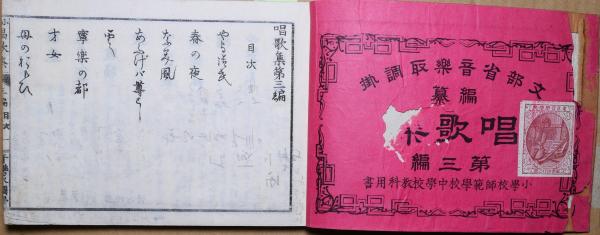 文部省音樂取調掛
編纂
唱歌
第三編
小學校師範學校中學校教科用書
唱歌集第三編
目次
やよ御民
春の夜
なみ風
あふげバ尊し
雲
寧樂の都
才女
母のおもひ